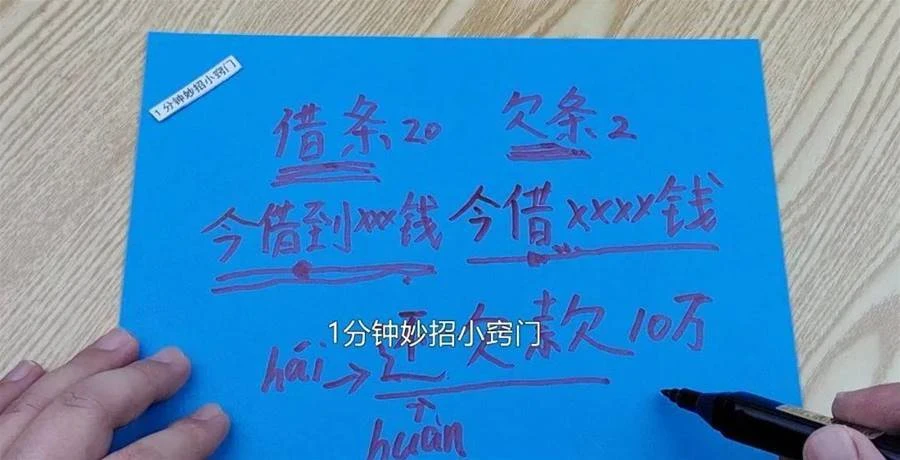 1分钟妙招小窍门
借条20 欠条2
今借到xxx钱 今借xxxx钱
还欠款10万
1分钟妙招小窍门
hái
huàn